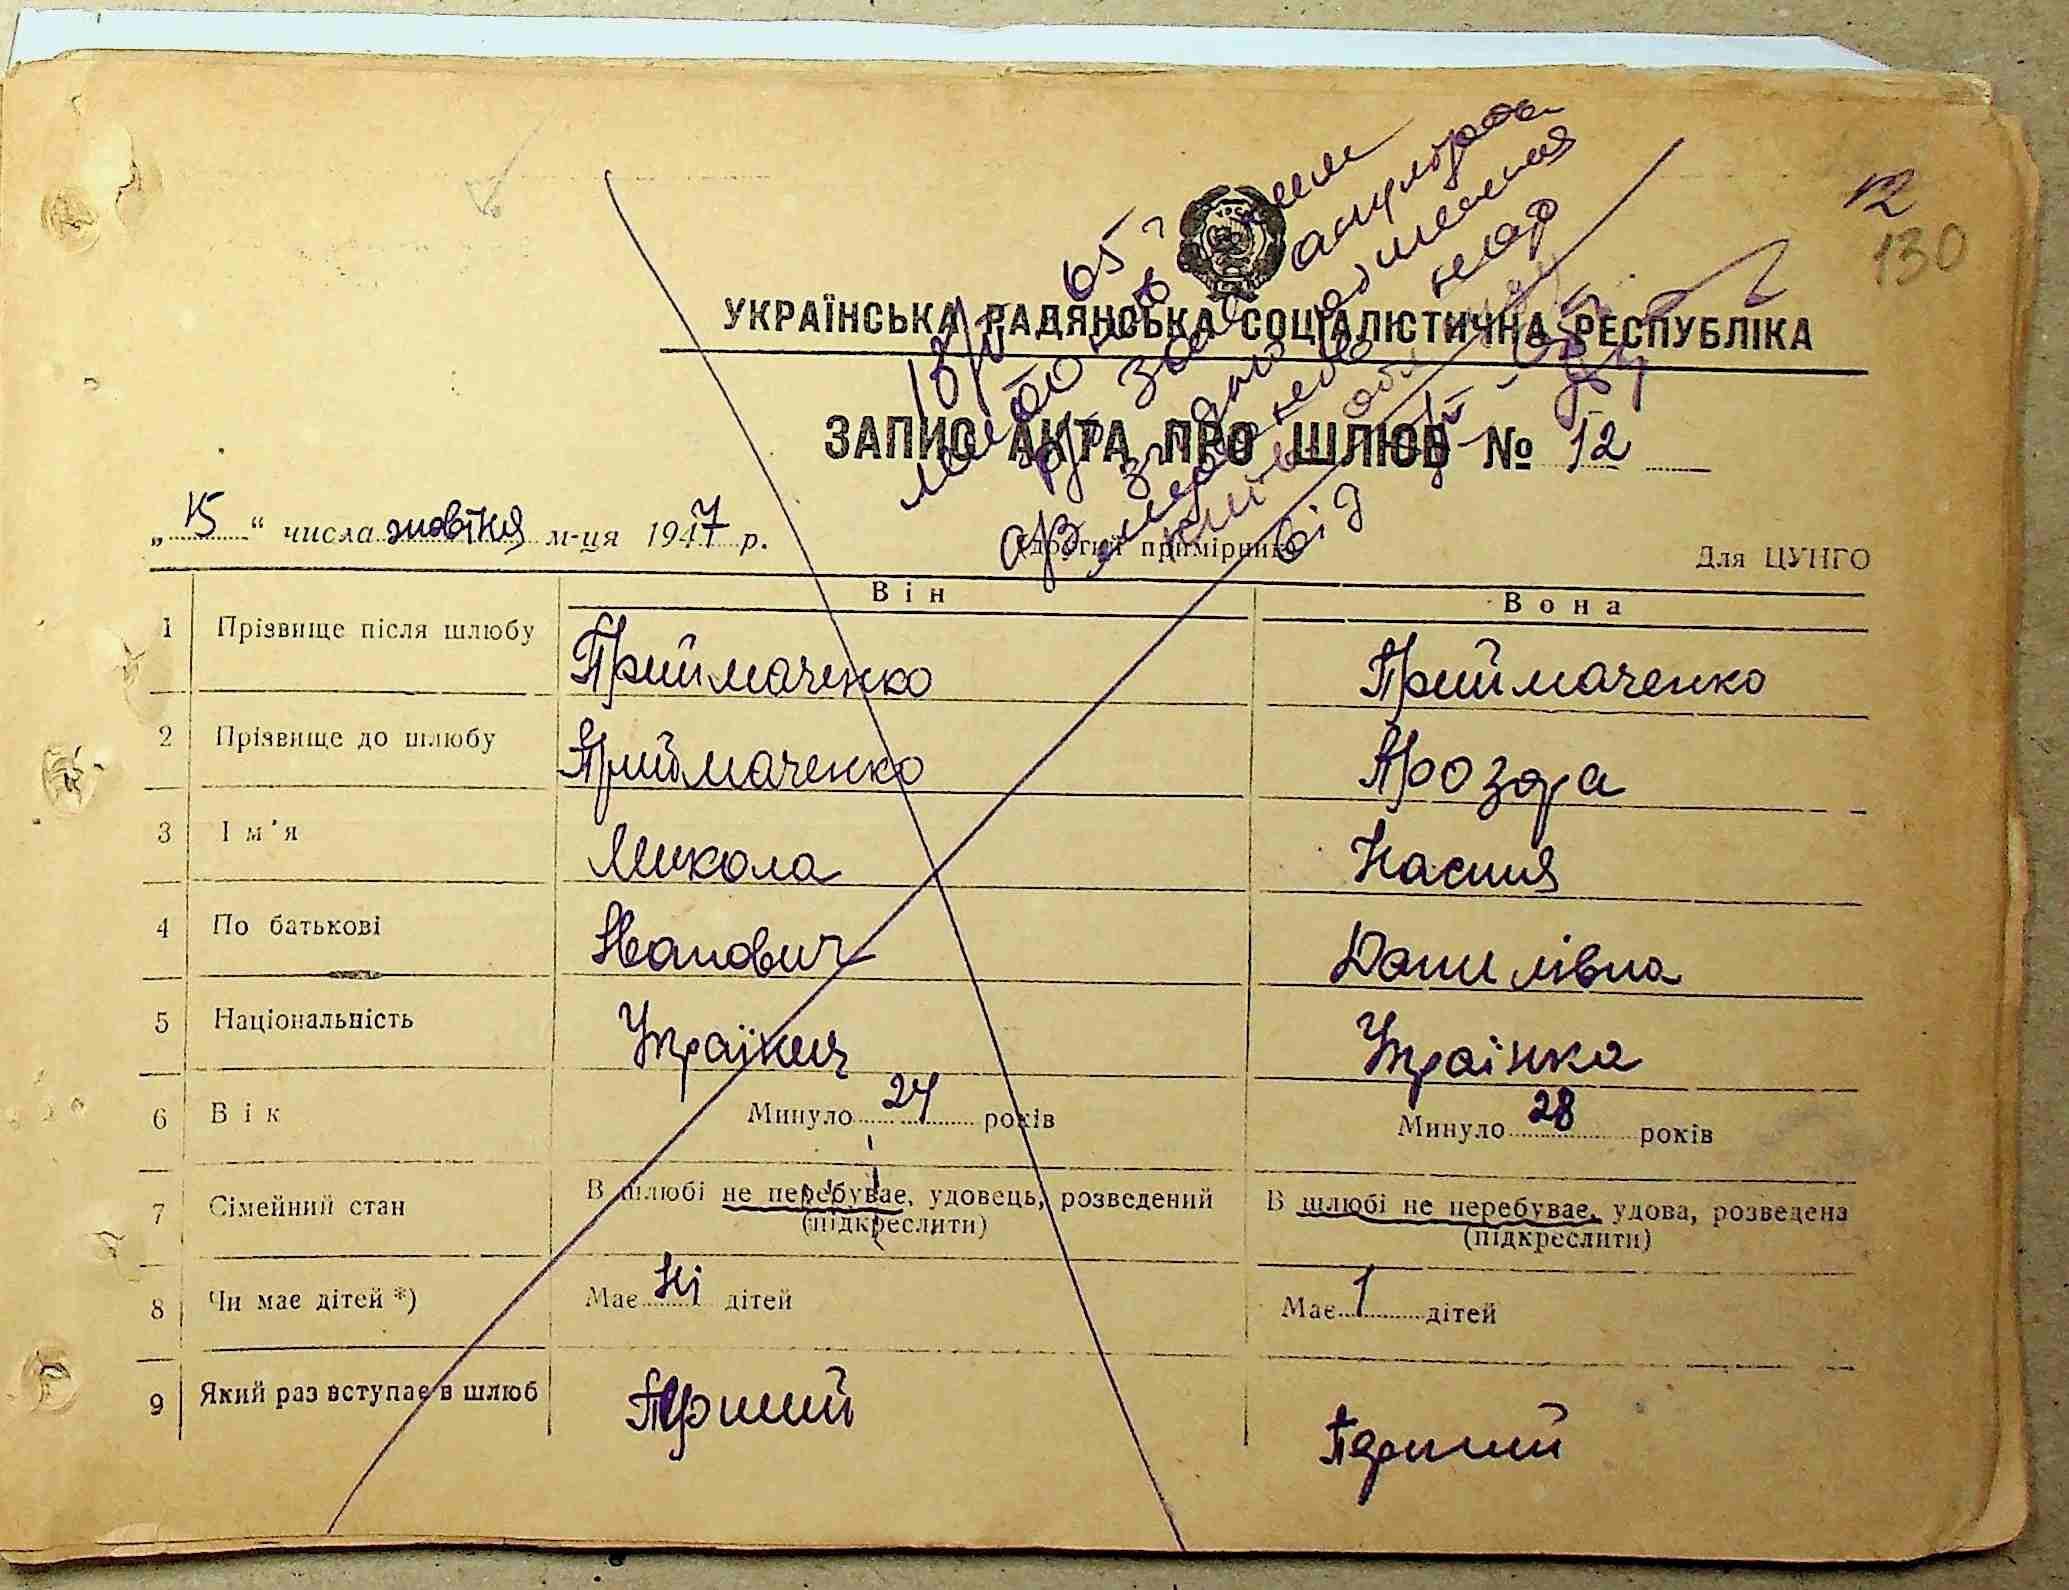 12
130
УКРАЇНСЬКА РАДЯНСЬКА СОЦІАЛІСТИЧНА РЕСПУБЛІКА
ЗАПИС АКТА ПРО ШЛЮБ № 12
„15“ числа жовтня м-ця 1947 р.
Другий примірник
Для ЦУНГО
Він Вона
1 Прізвище після шлюбу Приймаченко Приймаченко
2 Прізвище до шлюбу Приймаченко Прозора
3 Ім'я Микола Настя
4 По батькові Іванович Данилівна
5 Національність Українец Українка
6 Вік Минуло 24 років Минуло 28 років
7 Сімейний стан В шлюбі не перебуває, удовець, розведений В шлюбі не перебуває, удова, розведена
(підкреслити) (підкреслити)
8 Чи має дітей *) Має Ні дітей Має 1 дітей
9 Який раз вступає в шлюб Перший Перший